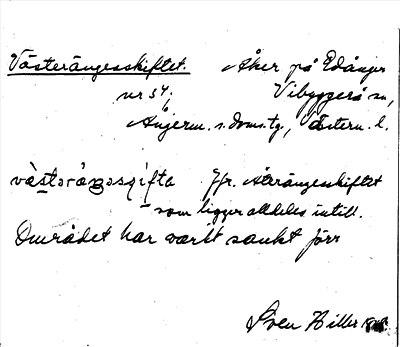 Västerängesskiftet. Åker på Edånger
nr 5⁴; Vibyggerå sn,
Ångerm. s. doms.tg., Västern. l.
Jfr. Återängesskiftet
som ligger alldeles intill.
Området har varit sankt förr
Sven Hiller